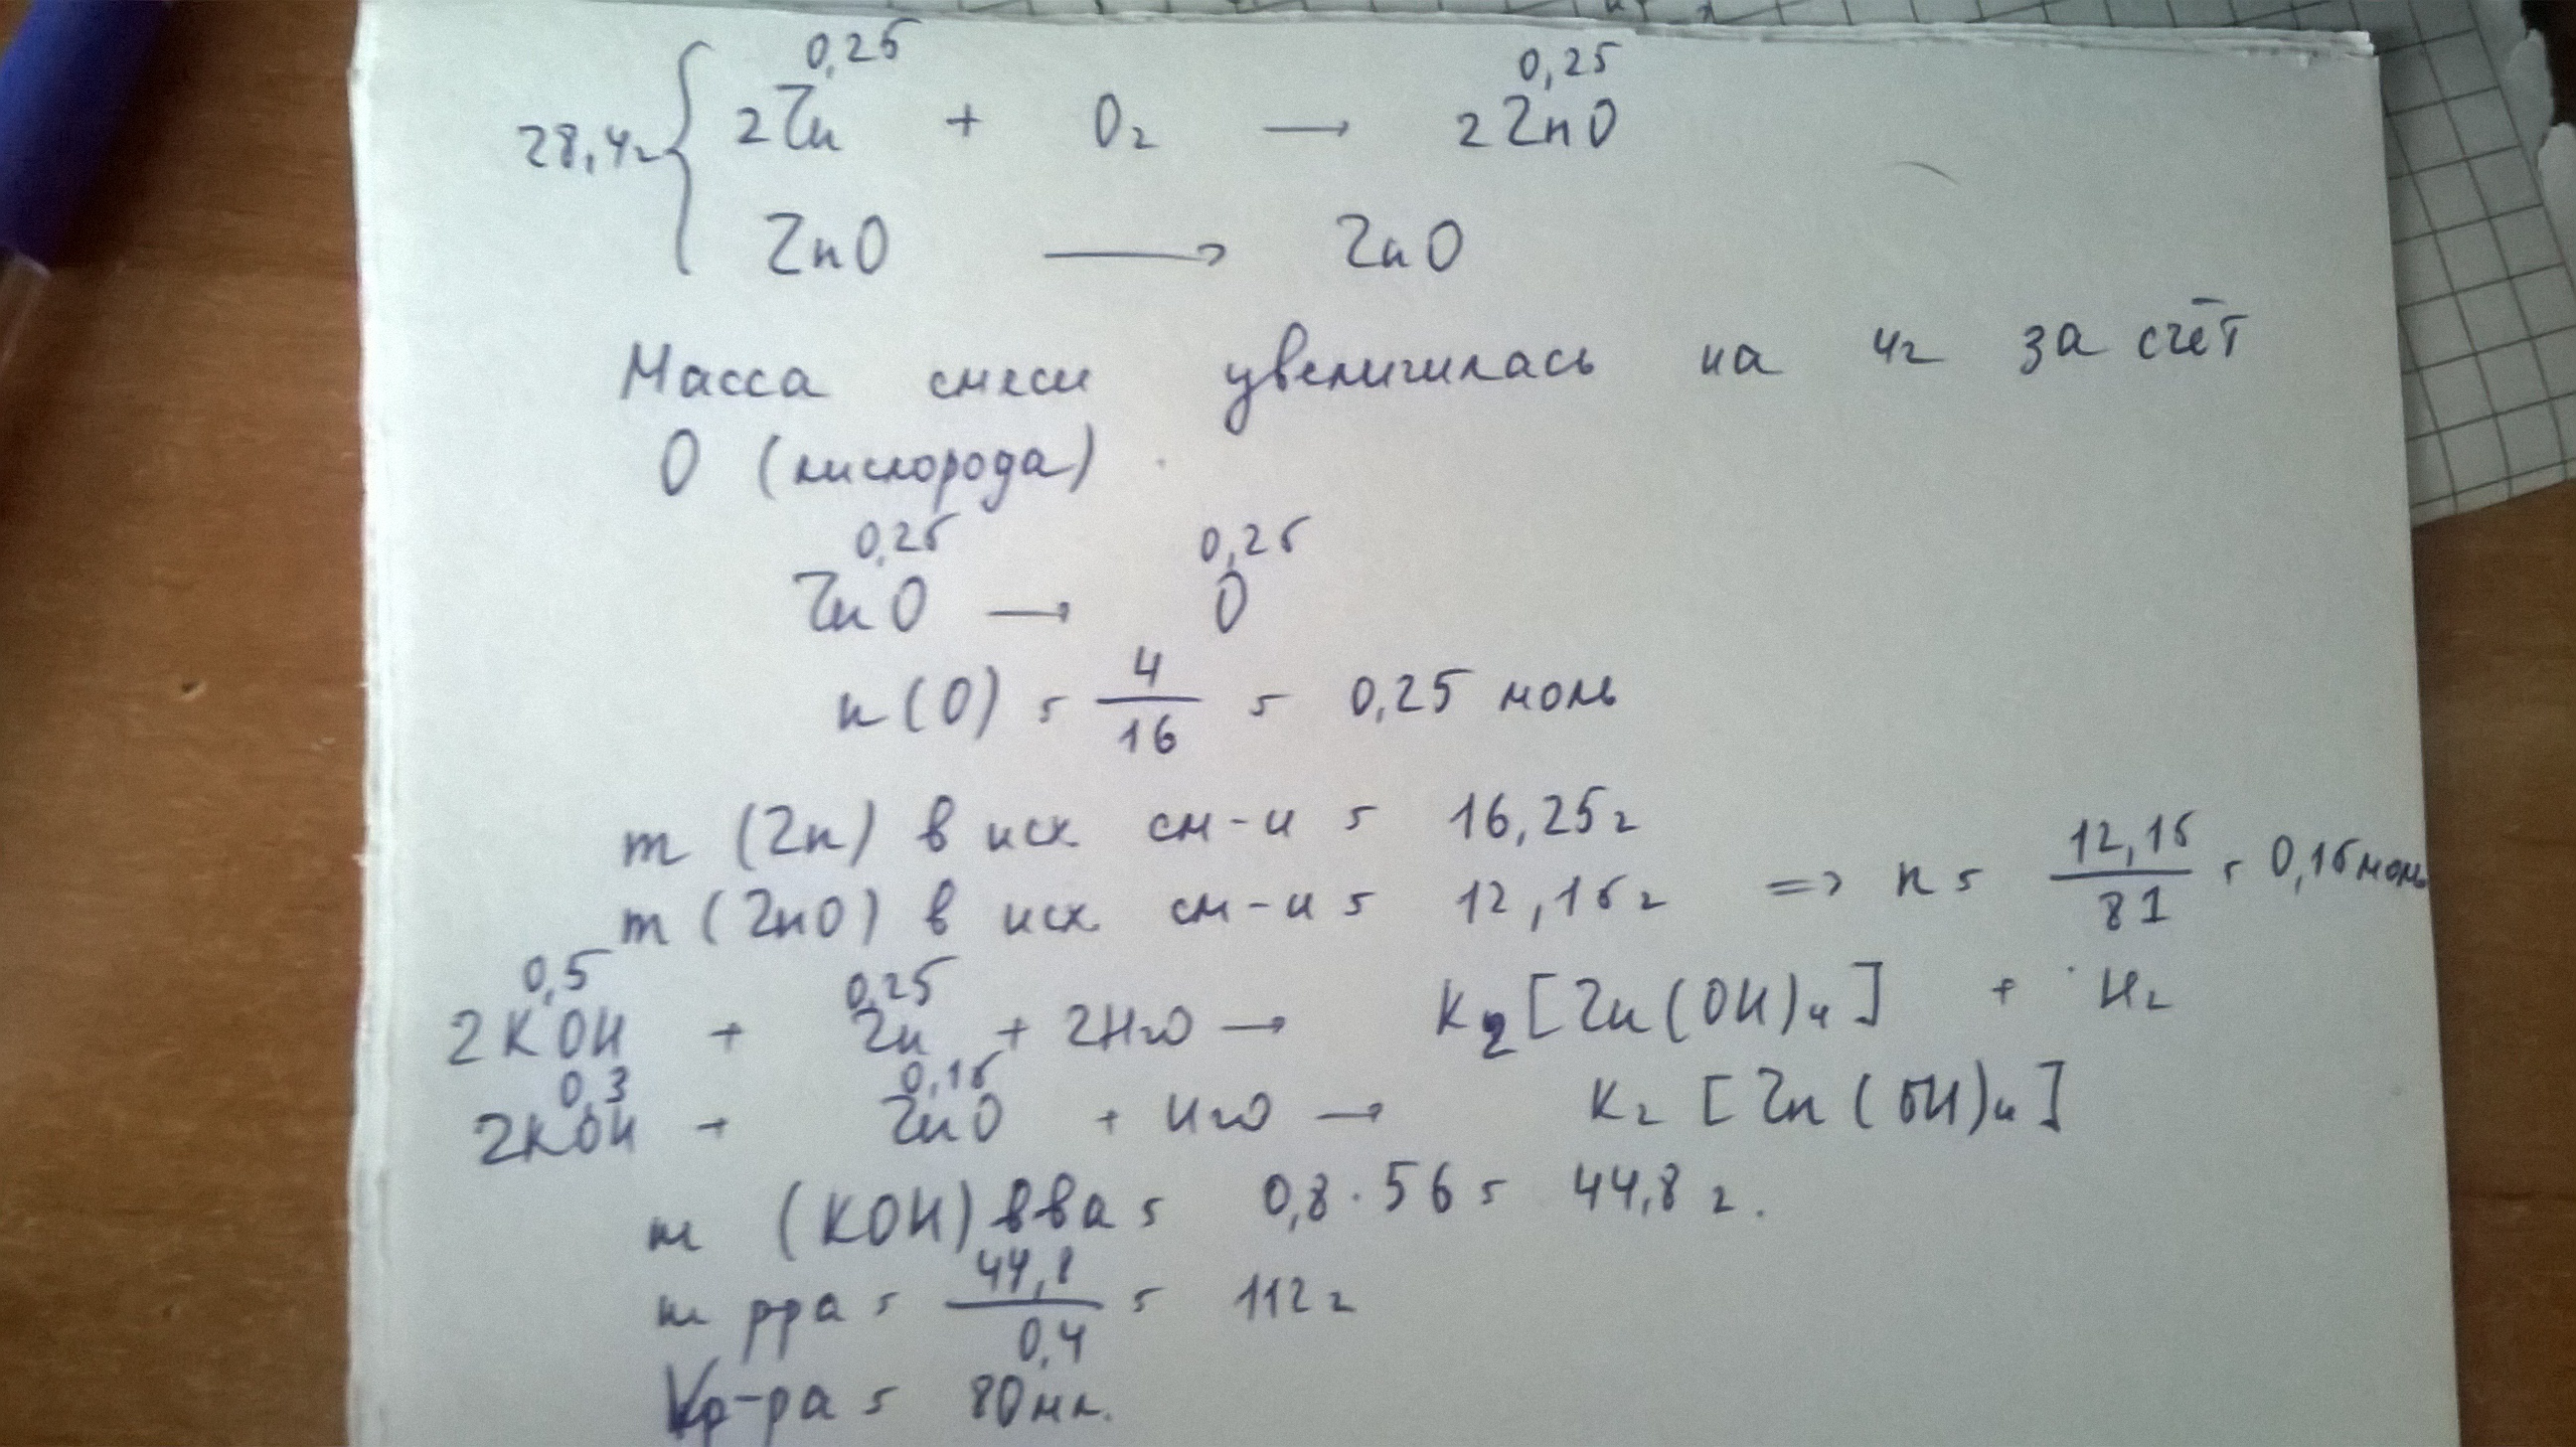 0,25 0,25
28,4г { 2Zn + O₂ → 2ZnO
ZnO → ZnO
Масса смеси увеличилась на 4г за счёт
О (кислорода)
0,25 0,25
ZnO → O
n(O) = 4/16 = 0,25 моль
m (Zn) в исх см-и = 16,25г
m (ZnO) в исх см-и = 12,15г => n = 12,15/81 = 0,15моль
0,5 0,25
2KOH + Zn + 2H₂O → K₂[Zn(OH)₄] + H₂
0,3 0,15
2KOH + ZnO + H₂O → K₂[Zn(OH)₄]
m (KOH) вва = 0,8·56 = 44,8г.
m рра = 44,8/0,4 = 112г
Vр-ра = 80мл.